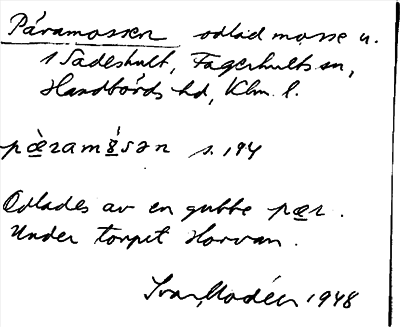 Päramossen odlad mosse u.
1 Sadeshult, Fagerhults sn,
Handbörds hd, Klm. l.
pæ̀ramǫ́sən s. 194
Odlades av en gubbe pær.
Under torpet Horvan.
Ivar Modéer 1948